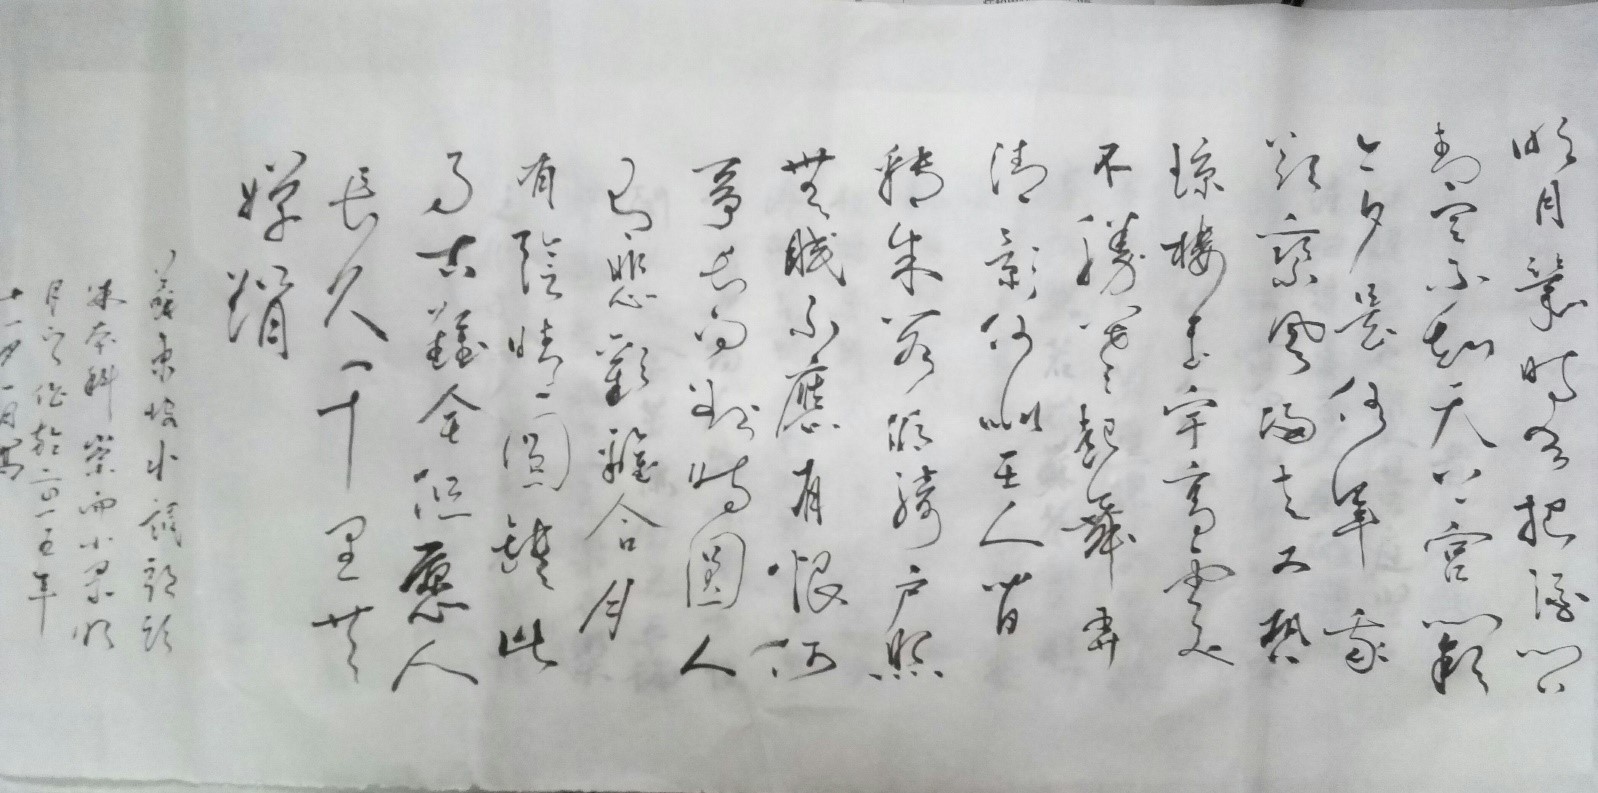 明月幾時有把酒問
青不知天上宮闕
今夕是何年我
欲乘風歸去又恐
瓊樓玉宇高處
不勝寒起舞弄
清影何似在人間
轉朱閣低綺戶照
無眠不應有恨何
事長向別時圓人
有悲歡離合月
有陰晴圓缺此
事古難全但願人
長久千里共
嬋娟
蘇東坡水調歌頭
月作於二〇一五年